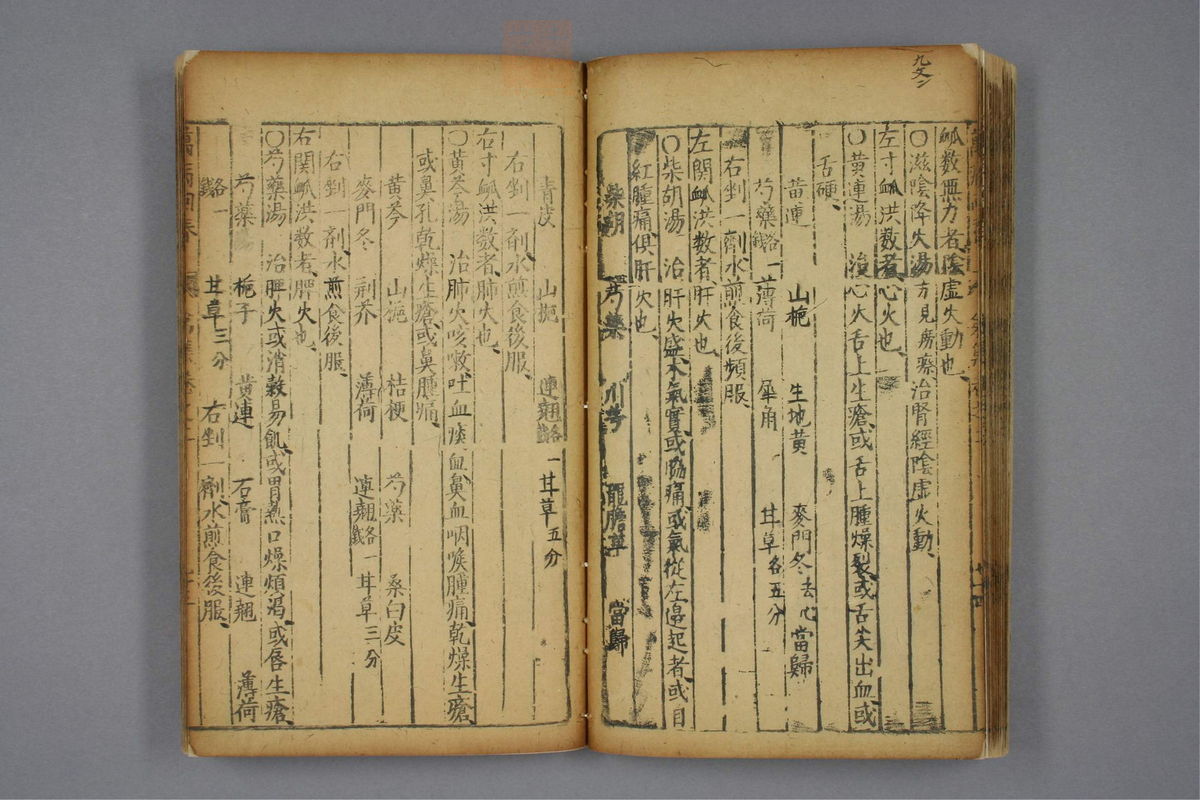 九文
脉数無力者陰虚火動也
〇滋陰降火湯方見癆瘵治腎經陰虚火動
左寸脉洪数者心火也
〇黄連湯 治心火舌上生瘡或舌上腫燥裂或舌尖出血或
舌硬
黄連 山梔 生地黄 麥門冬去心 當歸
芍藥各一錢 薄荷 犀角 甘草各五分
右剉一劑水煎食後頻服
左関脉洪数者肝火也
〇柴胡湯 治肝火盛木氣實或脇痛或氣從左邉起者或目
紅腫痛俱肝火也
柴胡 芍藥 川芎 龍膽草 當歸
青皮 山梔 連翹各一錢 甘草五分
右剉一剤水煎食後服
右寸脉洪数者肺火也
〇黄芩湯 治肺火咳嗽吐血痰血鼻血咽喉腫痛乾燥生瘡
或鼻孔乾燥生瘡或鼻腫痛
黄芩 山梔 桔梗 芍藥 桑白皮
麥門冬 荆芥 薄荷 連翹各一錢 甘草三分
右剉一剤水煎食後服
右関脉洪数者脾火也
〇芍藥湯 治脾火或消穀易飢或胃熱口燥煩渇或唇生瘡
芍藥 梔子 黄連 石膏 連翹 薄荷
各一錢 甘草三分 右剉一劑水煎食後服
萬病回春